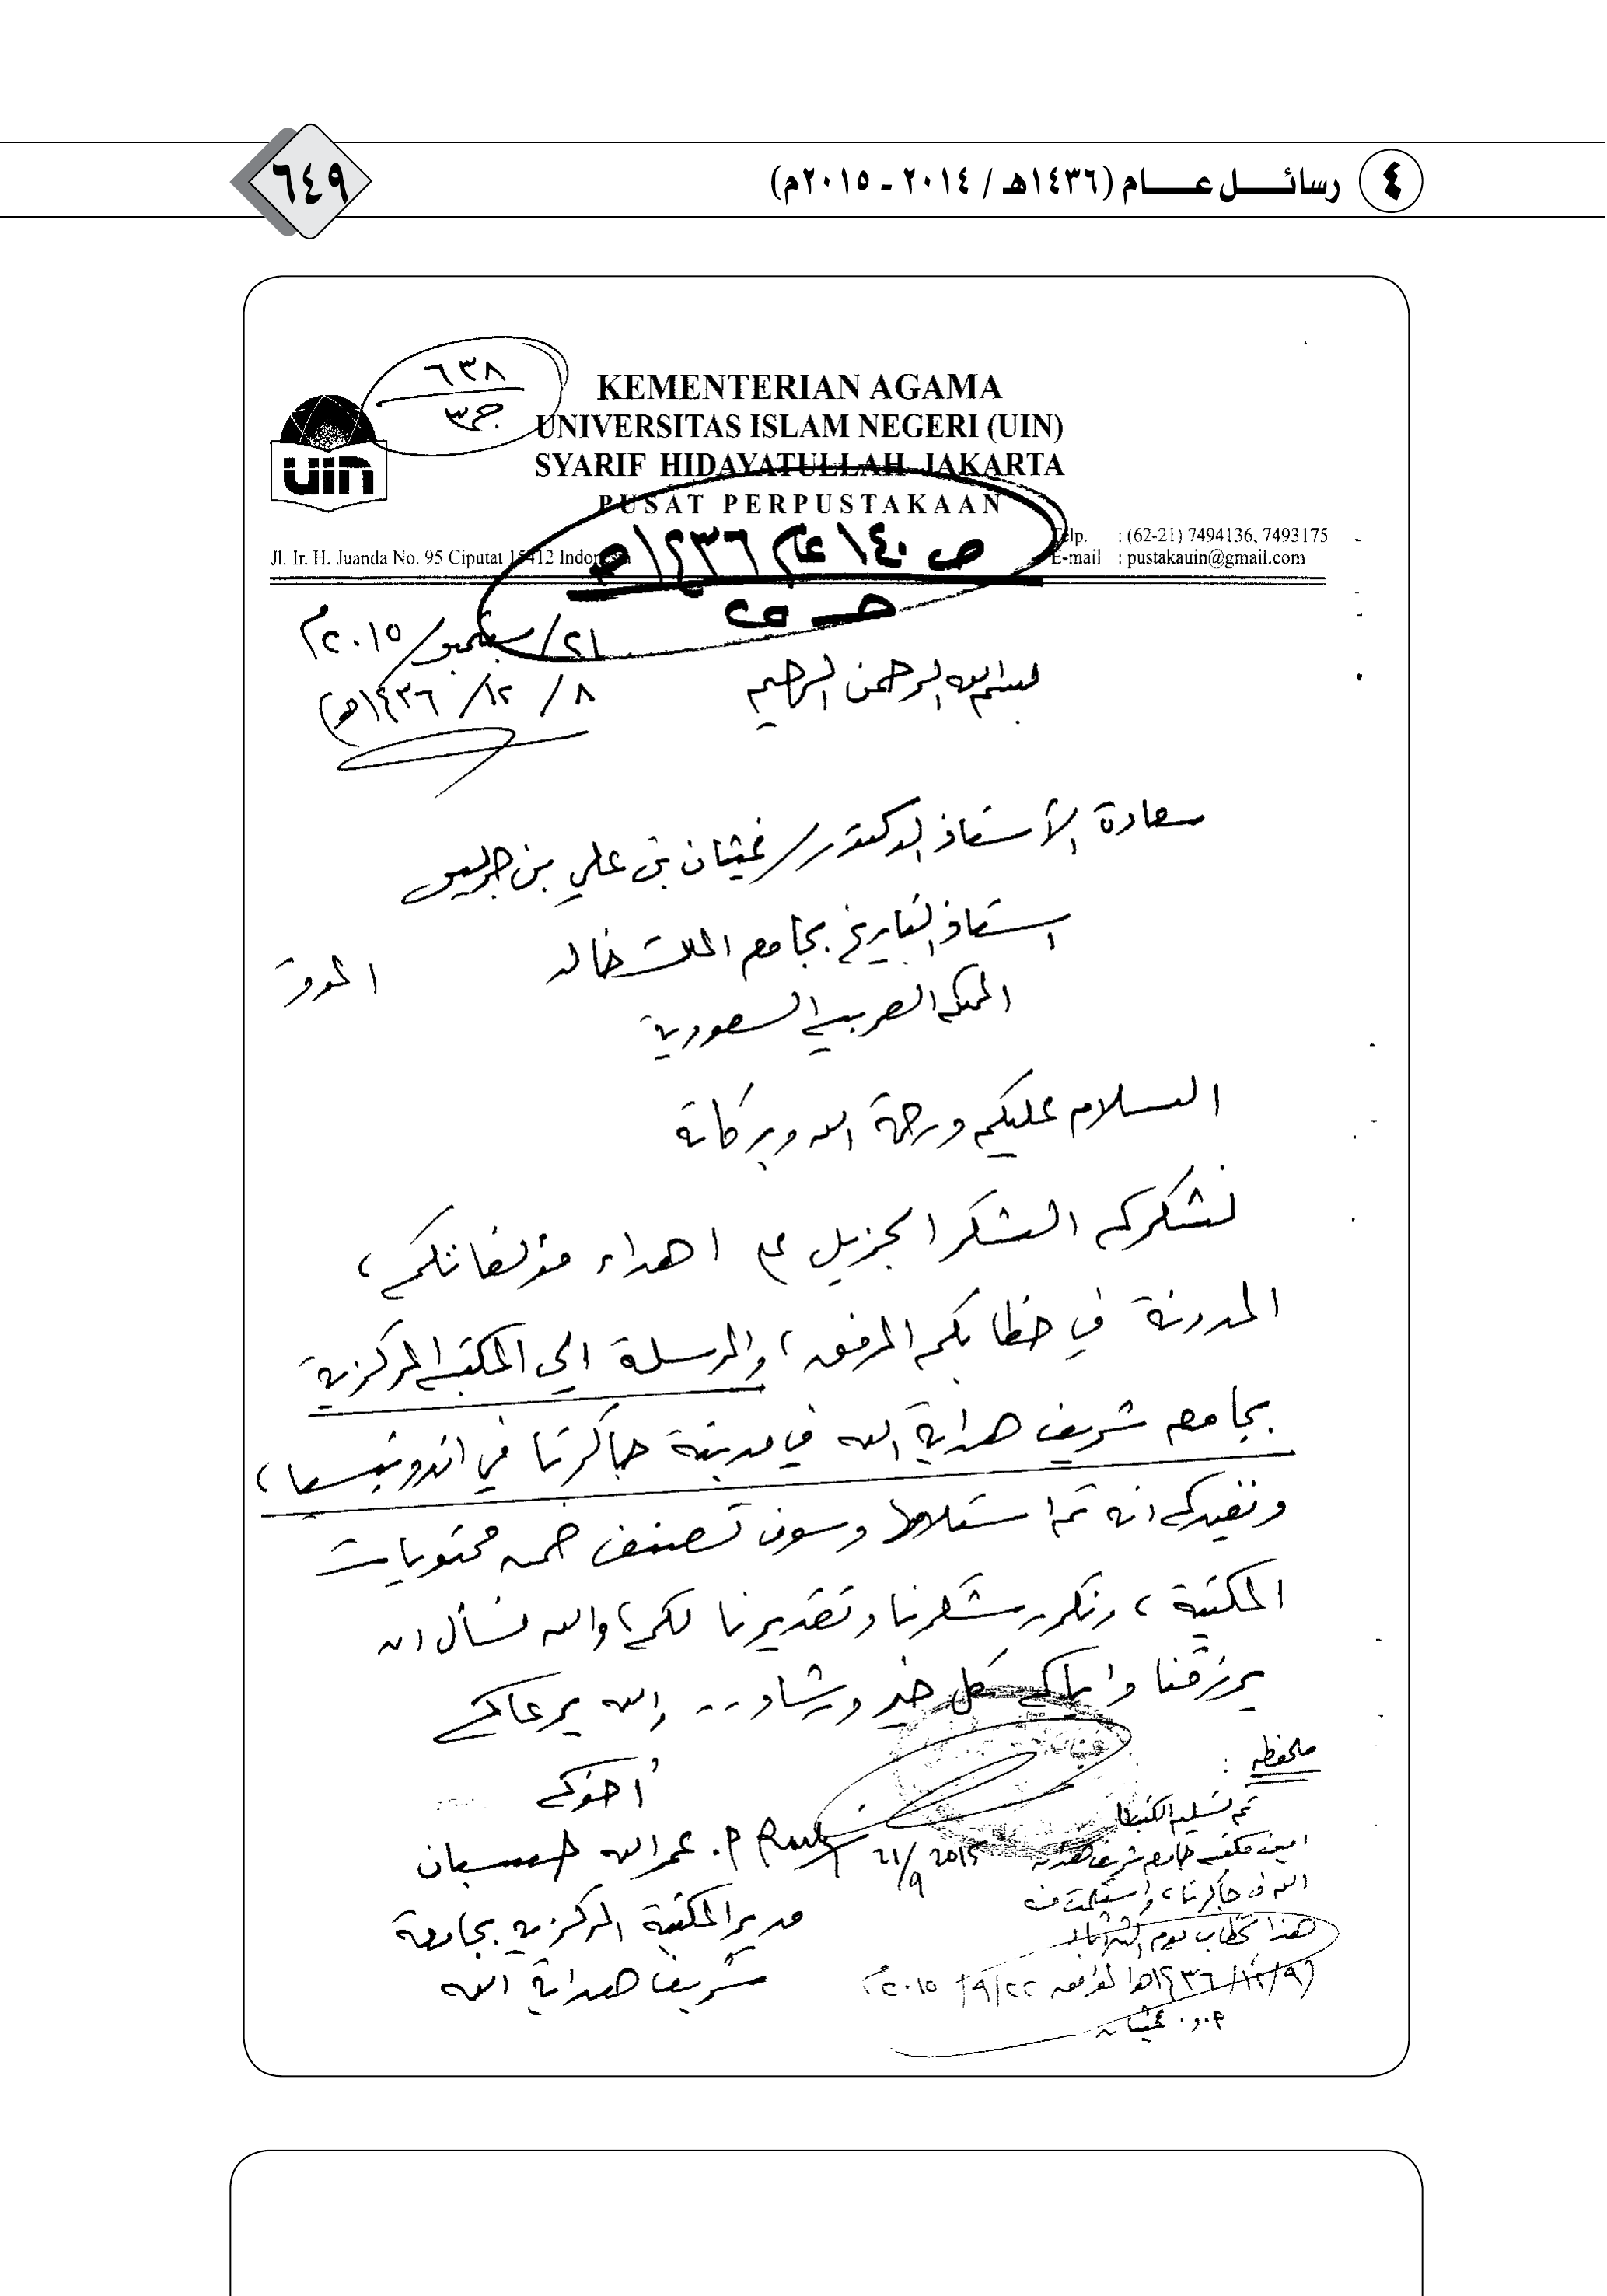 ٤ رسائـــل عـــام (١٤٣٦هـ / ٢٠١٤ - ٢٠١٥م)
٦٤٩
٦٣٨
ج٣
KEMENTERIAN AGAMA
UNIVERSITAS ISLAM NEGERI (UIN)
SYARIF HIDAYATULLAH JAKARTA
PUSAT PERPUSTAKAAN
uin
Telp. : (62-21) 7494136, 7493175
Jl. Ir. H. Juanda No. 95 Ciputat 15412 Indonesia
E-mail : pustakauin@gmail.com
ص ١٤٠ عام ١٤٣٦هـ
٢١/سبتمبر/٢٠١٥م
بسم الله الرحمن الرحيم
(٨ / ١٢/ ١٤٣٦هـ)
سعادة الأستاذ الدكتور/ غيثان بن علي بن جريس
استاذ التاريخ بجامعة الملك خالد
الموقر
المملكة العربية السعودية
السلام عليكم ورحمة الله وبركاتة
نشكركم الشكر الجزيل على اهداء مؤلفاتكم،
المدونة في خطابكم المرفق، والمرسلة الى المكتبة المركزية
بجامعة شريف هداية الله في مدينة جاكرتا في اندونيسيا،
ونفيدكم انه تم استلامها وسوف تصنف ضمن محتويات
المكتبة، ونكرر شكرنا وتقديرنا لكم، والله نسأل ان
يرزقنا واياكم كل خير ورشاد .. والله يرعاكم
أخوكم
م. عمر الله حسبان
21/9 2015
مدير المكتبة المركزية بجامعة
شريف هداية الله
ملحظه :
تم تسليم الكتب
امين مكتبة جامعة شريف هداية
الله في جاكرتا، واستلمت منه
هذا الخطاب يوم
(٩/١٢/١٤٣٦هـ) الموافق ٢٢/٩/٢٠١٥م
غيثان